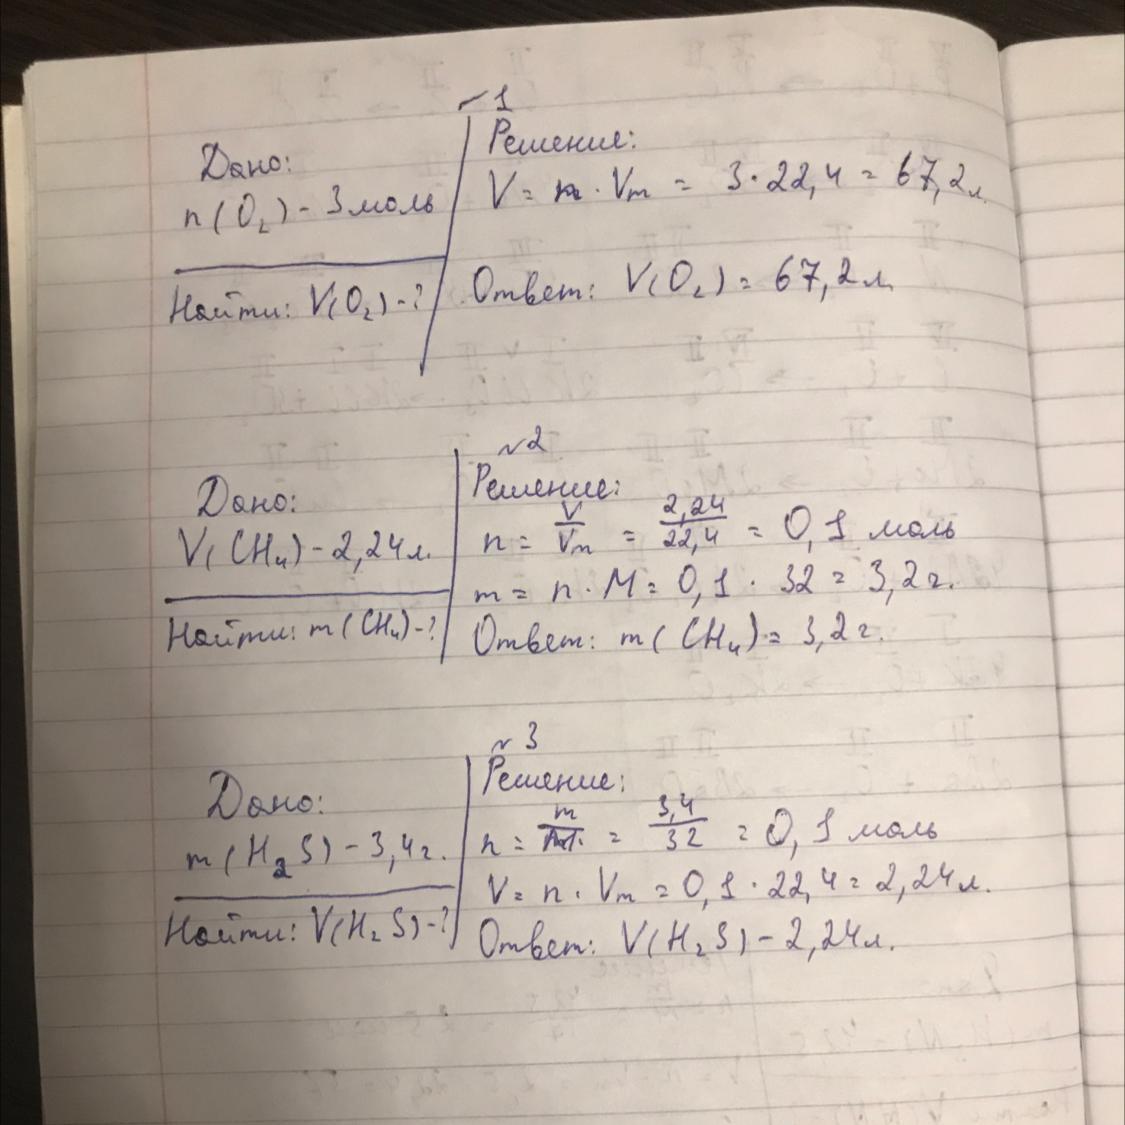 ~ 1
Дано:
n(O₂) - 3 моль
Найти: V(O₂) - ?
Решение:
V = n · Vm = 3 · 22,4 = 67,2 л.
Ответ: V(O₂) = 67,2 л.
~ 2
Дано:
V(CH₄) - 2,24 л.
Найти: m(CH₄) - ?
Решение:
n = V/Vm = 2,24/22,4 = 0,1 моль
m = n · M = 0,1 · 32 = 3,2 г.
Ответ: m(CH₄) = 3,2 г.
~ 3
Дано:
m(H₂S) - 3,4 г.
Найти: V(H₂S) - ?
Решение:
n = m/M = 3,4/32 = 0,1 моль
V = n · Vm = 0,1 · 22,4 = 2,24 л.
Ответ: V(H₂S) - 2,24 л.